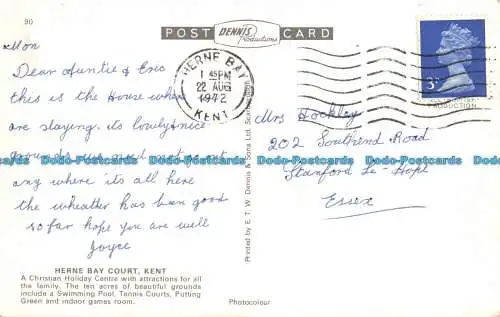 90
POST DENNIS Productions CARD
Mon
Dear Auntie & Eric
this is the House where
are staying. its lovely & nice
grounds you need not go out
any where its all here
the wheather has been good
so far hope you are well
Joyce
HERNE BAY COURT, KENT
A Christian Holiday Centre with attractions for all
the family. The ten acres of beautiful grounds
include a Swimming Pool, Tennis Courts, Putting
Green and indoor games room.
Printed by E. T. W. Dennis & Sons Ltd.
Photocolour
HERNE BAY
1 45PM
22 AUG
1972
KENT
3P
Mrs Hockley
202 Southend Road
Stanford Le-Hope
Essex
Dodo-Postcards Dodo-Postcards Dodo-Postcards Dodo-Postcards Dodo-Postcards